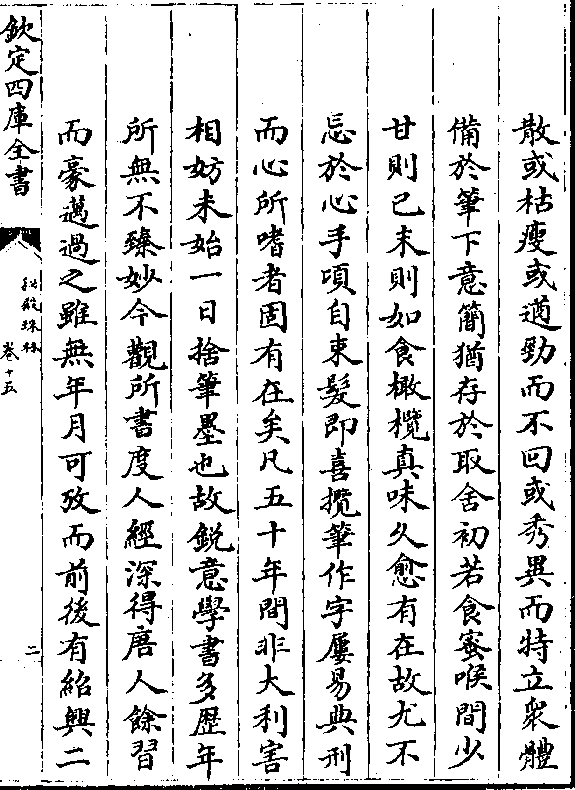 散或枯瘦或遒勁而不回或秀異而特立衆體
備於筆下意簡猶存於取舍初若食蜜喉間少
甘則已末則如食橄欖真味久愈有在故尤不
忘於心手頃自束髪即喜攬筆作字屢易典刑
而心所嗜者固有在矣凡五十年間非大利害
相妨未始一日捨筆墨也故鋭意學書多歴年
所無不臻妙今觀所書度人經深得唐人餘習
而豪邁過之雖無年月可攷而前後有紹興二
欽定四庫全書
秘殿珠林
卷十五
二